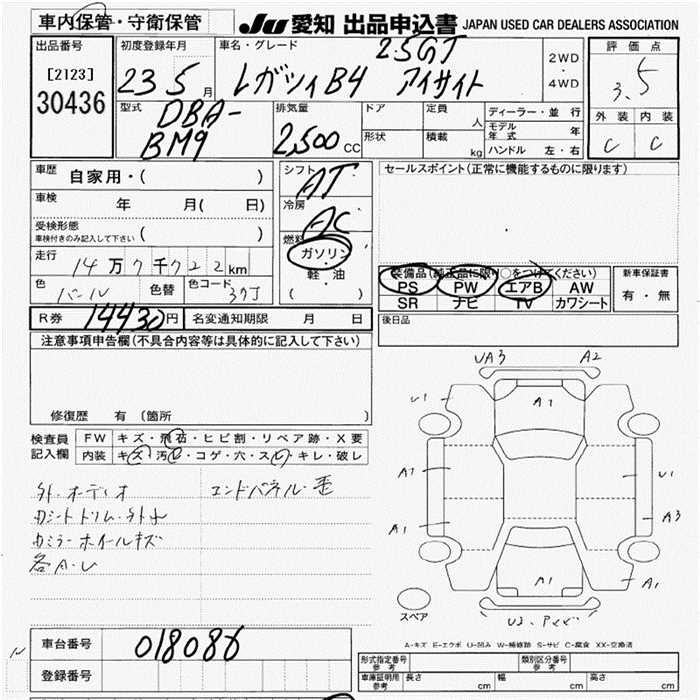 車内保管・守衛保管
JU 愛知 出品申込書 JAPAN USED CAR DEALERS ASSOCIATION
出品番号 初度登録年月 車名・グレード 2.5GT 2WD・4WD 評価点
[2123] 30436 23 5月 レガツィB4 アイサイト 3.5
型式 DBA-BM9 排気量 2,500CC ドア 定員 人 ディーラー・並行 外装 内装
形状 積載 kg モデル年式 年 C C
ハンドル 左・右
車歴 自家用・( ) シフト AT セールスポイント(正常に機能するものに限ります)
車検 年 月( 日) 冷房 AC
受検形態 車検付きのみ記入して下さい ( ) 燃料 ガソリン・軽・油 ( )
走行 14万7千722km 装備品(純正品に限り○をつけてください) 新車保証書
色 パール 色替 色コード 37J PS PW エアB AW 有・無
SR ナビ TV カワシート
R券 14430円 名変通知期限 月 日 後日品
注意事項申告欄(不具合内容等は具体的に記入して下さい)
修復歴 有(箇所 )
検査員記入欄 FW キズ・飛石・ヒビ割・リペア跡・X要
内装 キズ・汚レ・コゲ・穴・スレ・キレ・破レ
外.オーディオ エンドパネル・歪
カミラーホイールキズ
各A.U
UA3 A2
U1 A1
A1 U1
A1 A3
A1 A1
スペア
A-キズ E-エクボ U-凹み W-補修跡 S-サビ C-腐食 XX-交換済
車台番号 018086
登録番号
形式指定番号 参考 類別区分番号 参考
車庫証明用 参考 長さ cm 幅 cm 高さ cm